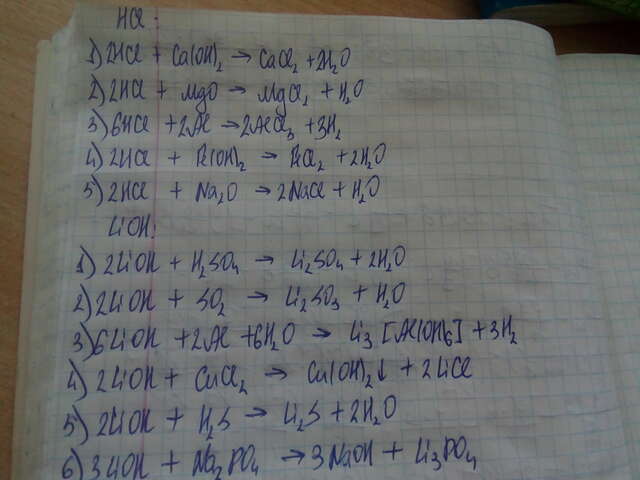 HCl:
1) 2HCl + Ca(OH)₂ → CaCl₂ + 2H₂O
2) 2HCl + MgO → MgCl₂ + H₂O
3) 6HCl + 2Al → 2AlCl₃ + 3H₂
4) 2HCl + Fe(OH)₂ → FeCl₂ + 2H₂O
5) 2HCl + Na₂O → 2NaCl + H₂O
LiOH:
1) 2LiOH + H₂SO₄ → Li₂SO₄ + 2H₂O
2) 2LiOH + SO₂ → Li₂SO₃ + H₂O
3) 6LiOH + 2Al + 6H₂O → Li₃[Al(OH)₆] + 3H₂
4) 2LiOH + CuCl₂ → Cu(OH)₂↓ + 2LiCl
5) 2LiOH + H₂S → Li₂S + 2H₂O
6) 3LiOH + Na₃PO₄ → 3NaOH + Li₃PO₄